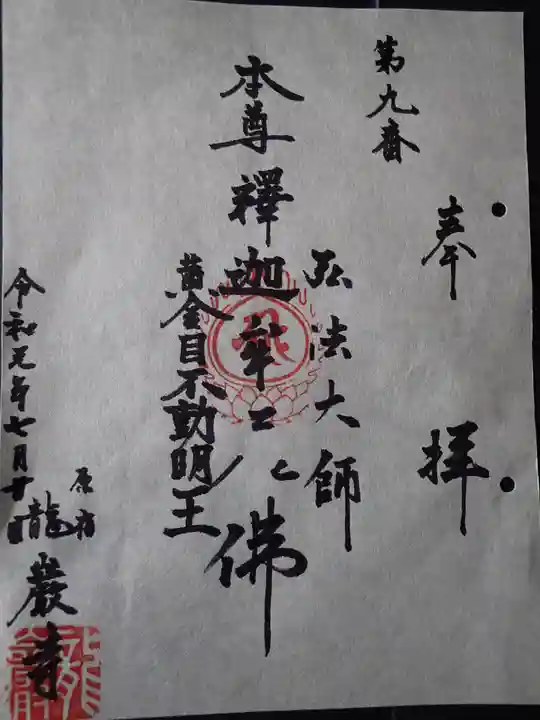 奉 拝
第九番
弘法大師
本尊 釋迦牟尼佛
黄金目不動明王
令和元年七月廿日
原宿
龍巖寺